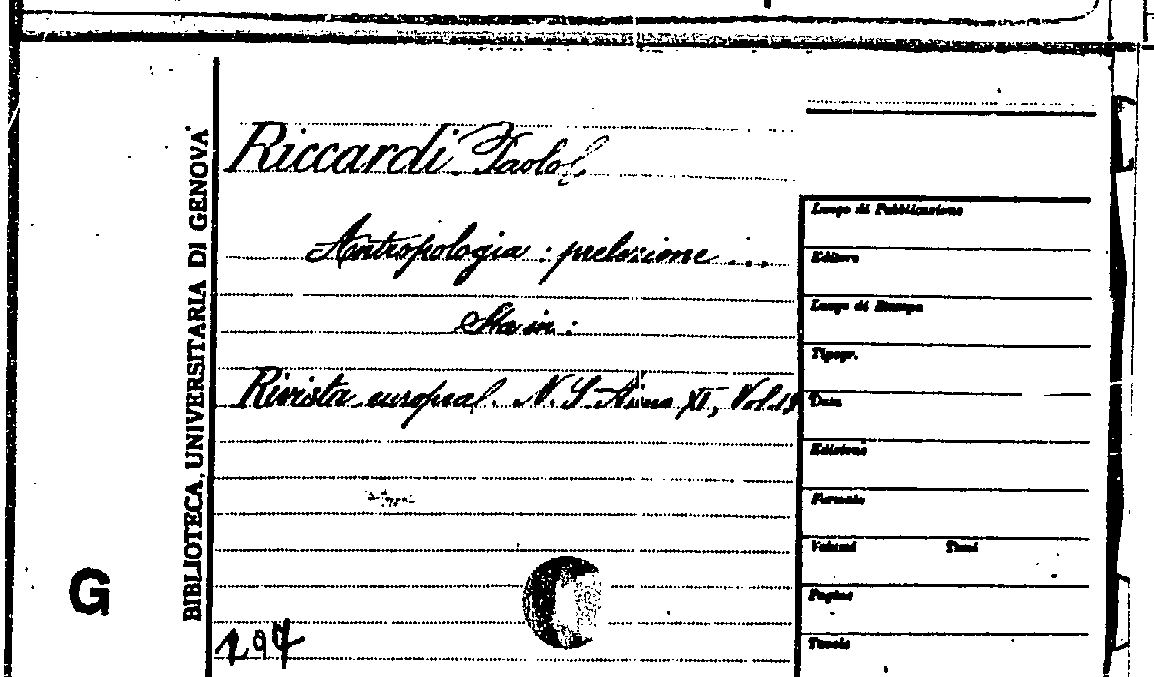 Riccardi Paolo
Antropologia : prelezione ...
Sta in :
Rivista europea. N. S. Anno XI, Vol. 18
BIBLIOTECA UNIVERSITARIA DI GENOVA
G
197
Luogo di Pubblicazione
Editore
Luogo di Stampa
Tipogr.
Data
Edizione
Formato
Volumi Tomi
Pagine
Tavole